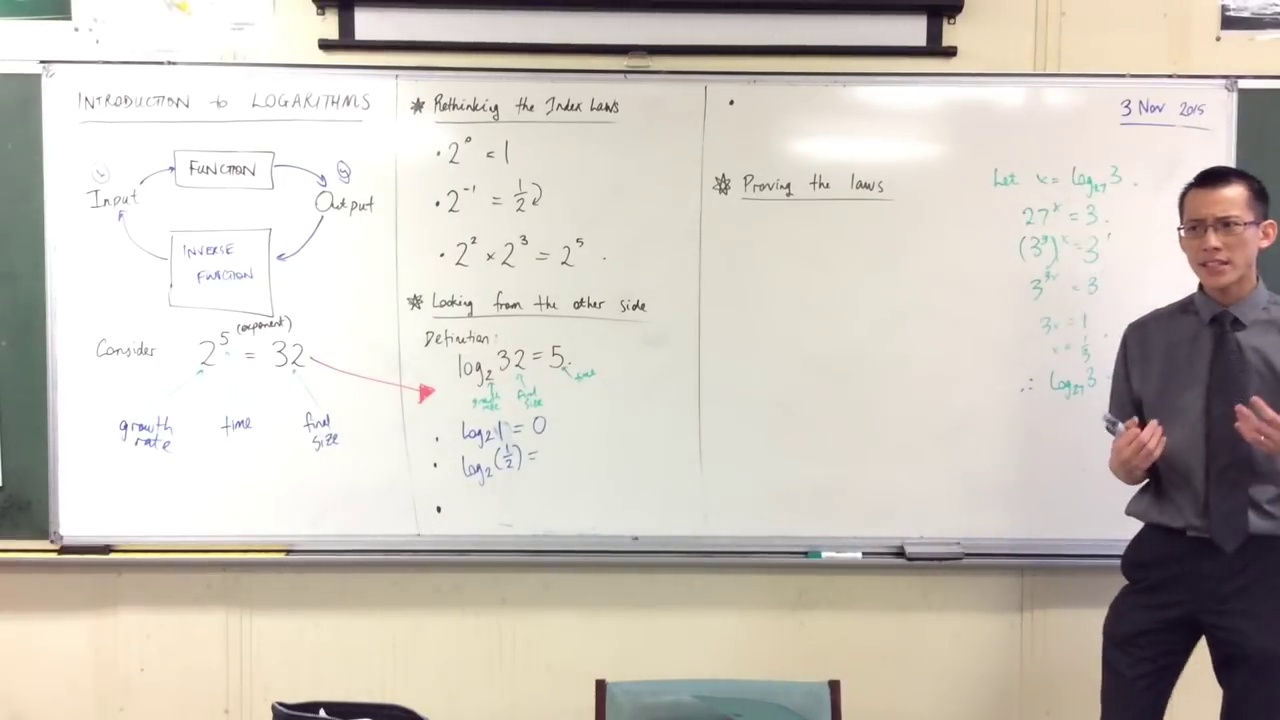 INTRODUCTION to LOGARITHMS
FUNCTION
Input
Output
INVERSE
FUNCTION
(exponent)
Consider 2^5 = 32
growth rate
time
final size
* Rethinking the Index Laws
• 2^0 = 1
• 2^-1 = 1/2
• 2^2 × 2^3 = 2^5.
* Looking from the other side
Definition:
log_2 32 = 5.
growth rate
final size
time
• log_2 1 = 0
• log_2 (1/2) =
•
•
* Proving the laws
3 Nov 2015
Let x = log_27 3.
27^x = 3.
(3^3)^x = 3^1
3^3x = 3
3x = 1
x = 1/3
∴ log_27 3